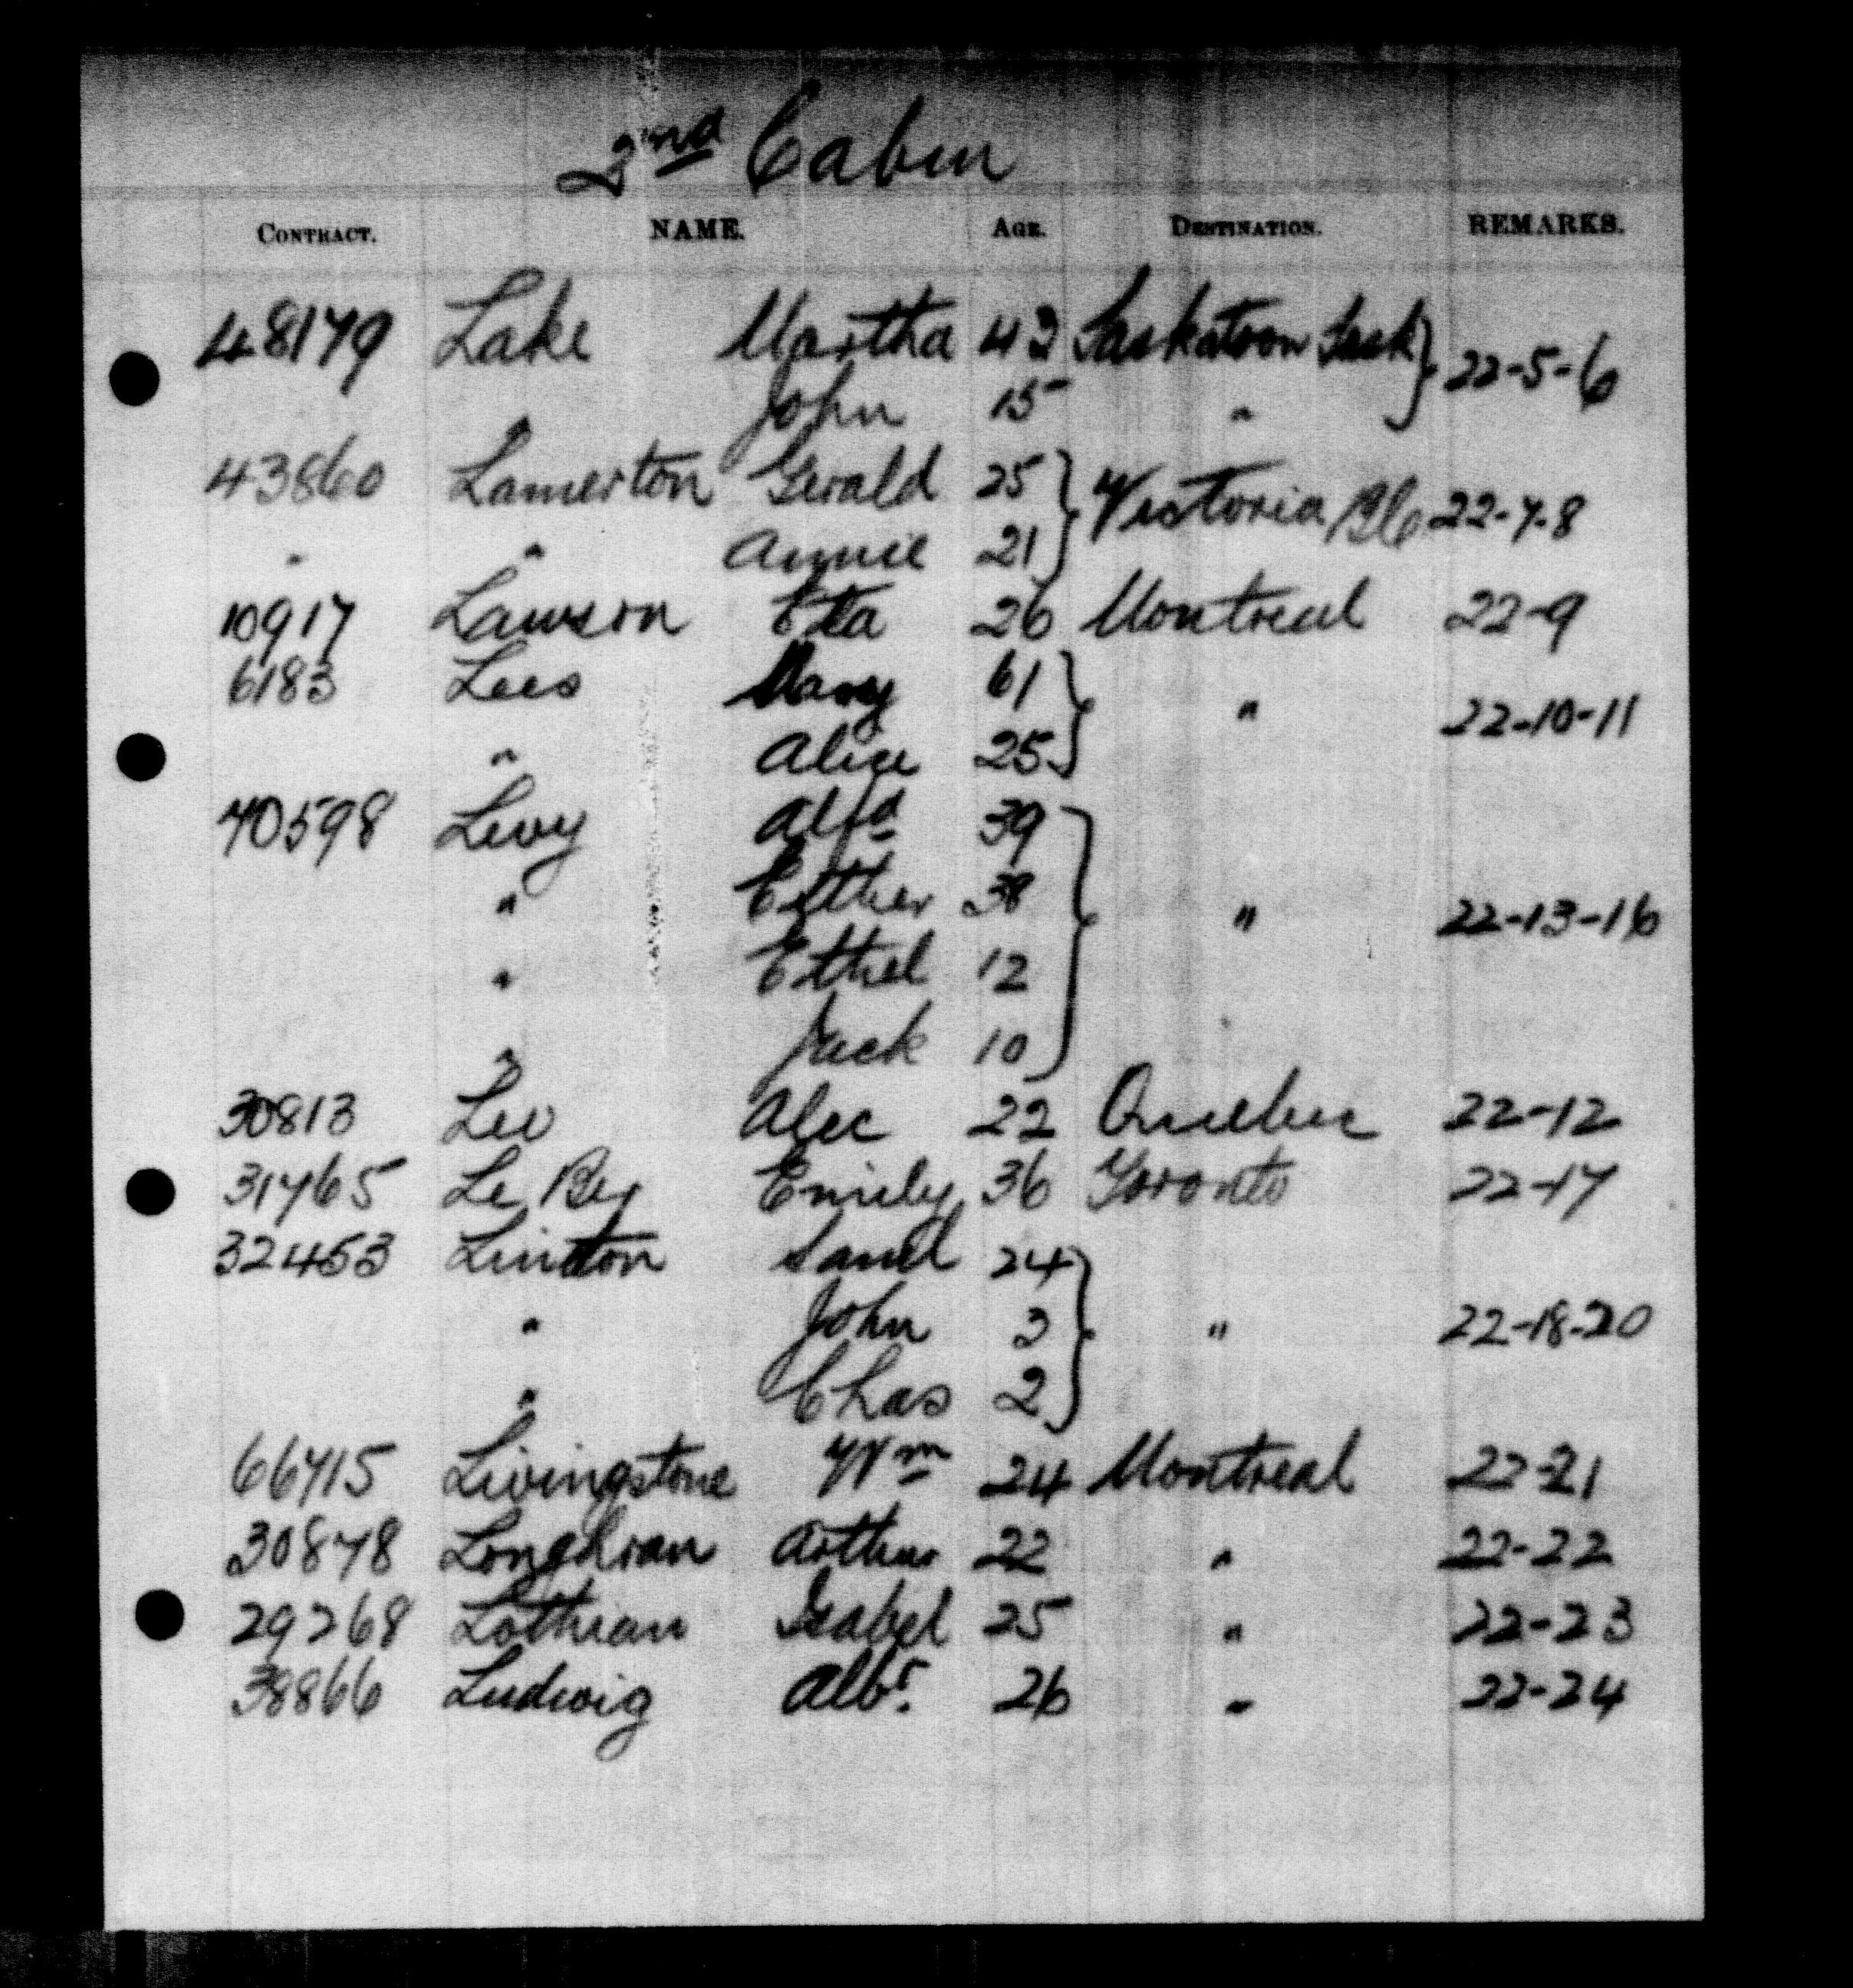 2nd Cabin
CONTRACT. NAME. AGE. DESTINATION. REMARKS.
48179 Lake Martha 42 Saskatoon Sask } 22-5-6
" John 15 "
43860 Lamerton Gerald 25 } Victoria BC 22-7-8
" " Annie 21
10917 Lawson Eta 26 Montreal 22-9
6183 Lees Mary 61 } " 22-10-11
" Alice 25
70598 Levy Alfd 39
" Esther 38 } " 22-13-16
" Ethel 12
" Jack 10
30813 Leo Alec 22 Quebec 22-12
31765 Le Bey Emily 36 Toronto 22-17
32453 Linton Saml 24
" John 3 } " 22-18-20
" Chas 2
66715 Livingstone Wm 24 Montreal 22-21
30878 Loughran Arthur 22 " 22-22
29268 Lothian Isabel 25 " 22-23
38866 Ludwig Albt. 26 " 22-24